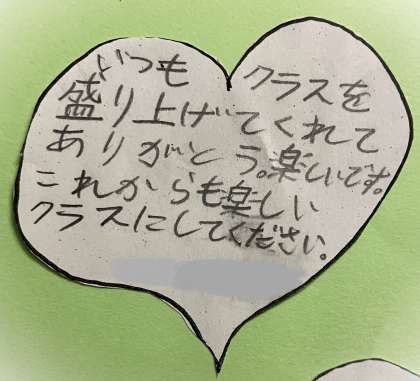 いつも クラスを
盛り上げてくれて
ありがとう。楽しいです。
これからも楽しい
クラスにしてください。